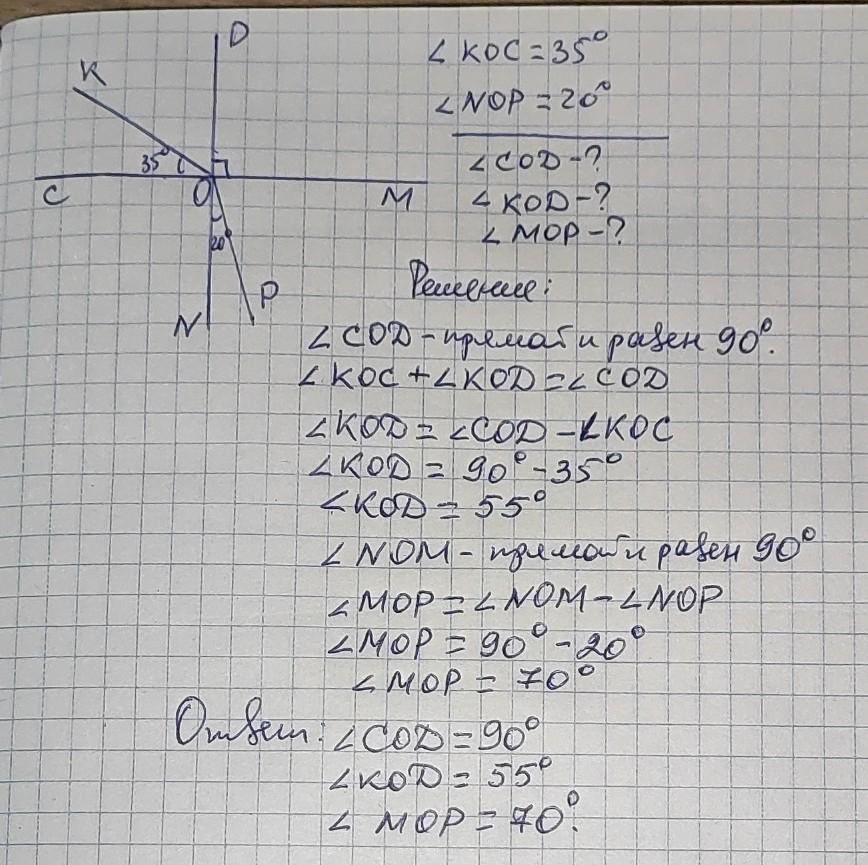 D
K
∠KOC = 35°
∠NOP = 20°
35°
C
O
M
∠COD - ?
∠KOD - ?
∠MOP - ?
20°
N
P
Решение:
∠COD - прямой и равен 90°.
∠KOC + ∠KOD = ∠COD
∠KOD = ∠COD - ∠KOC
∠KOD = 90° - 35°
∠KOD = 55°
∠NOM - прямой и равен 90°
∠MOP = ∠NOM - ∠NOP
∠MOP = 90° - 20°
∠MOP = 70°
Ответ: ∠COD = 90°
∠KOD = 55°
∠MOP = 70°.